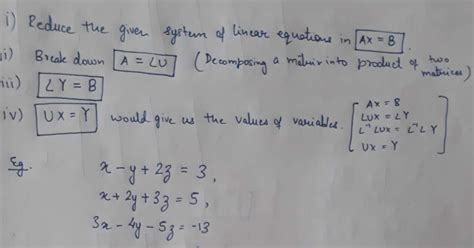 i) Reduce the given system of linear equations in AX = B.
ii) Break down A = LU (Decomposing a matrix into product of two matrices)
iii) LY = B
iv) UX = Y would give us the values of variables.
AX = B
LUX = LY
L⁻¹LUX = L⁻¹LY
UX = Y
Eg. x - y + 2z = 3,
x + 2y + 3z = 5,
3x - 4y - 5z = -13